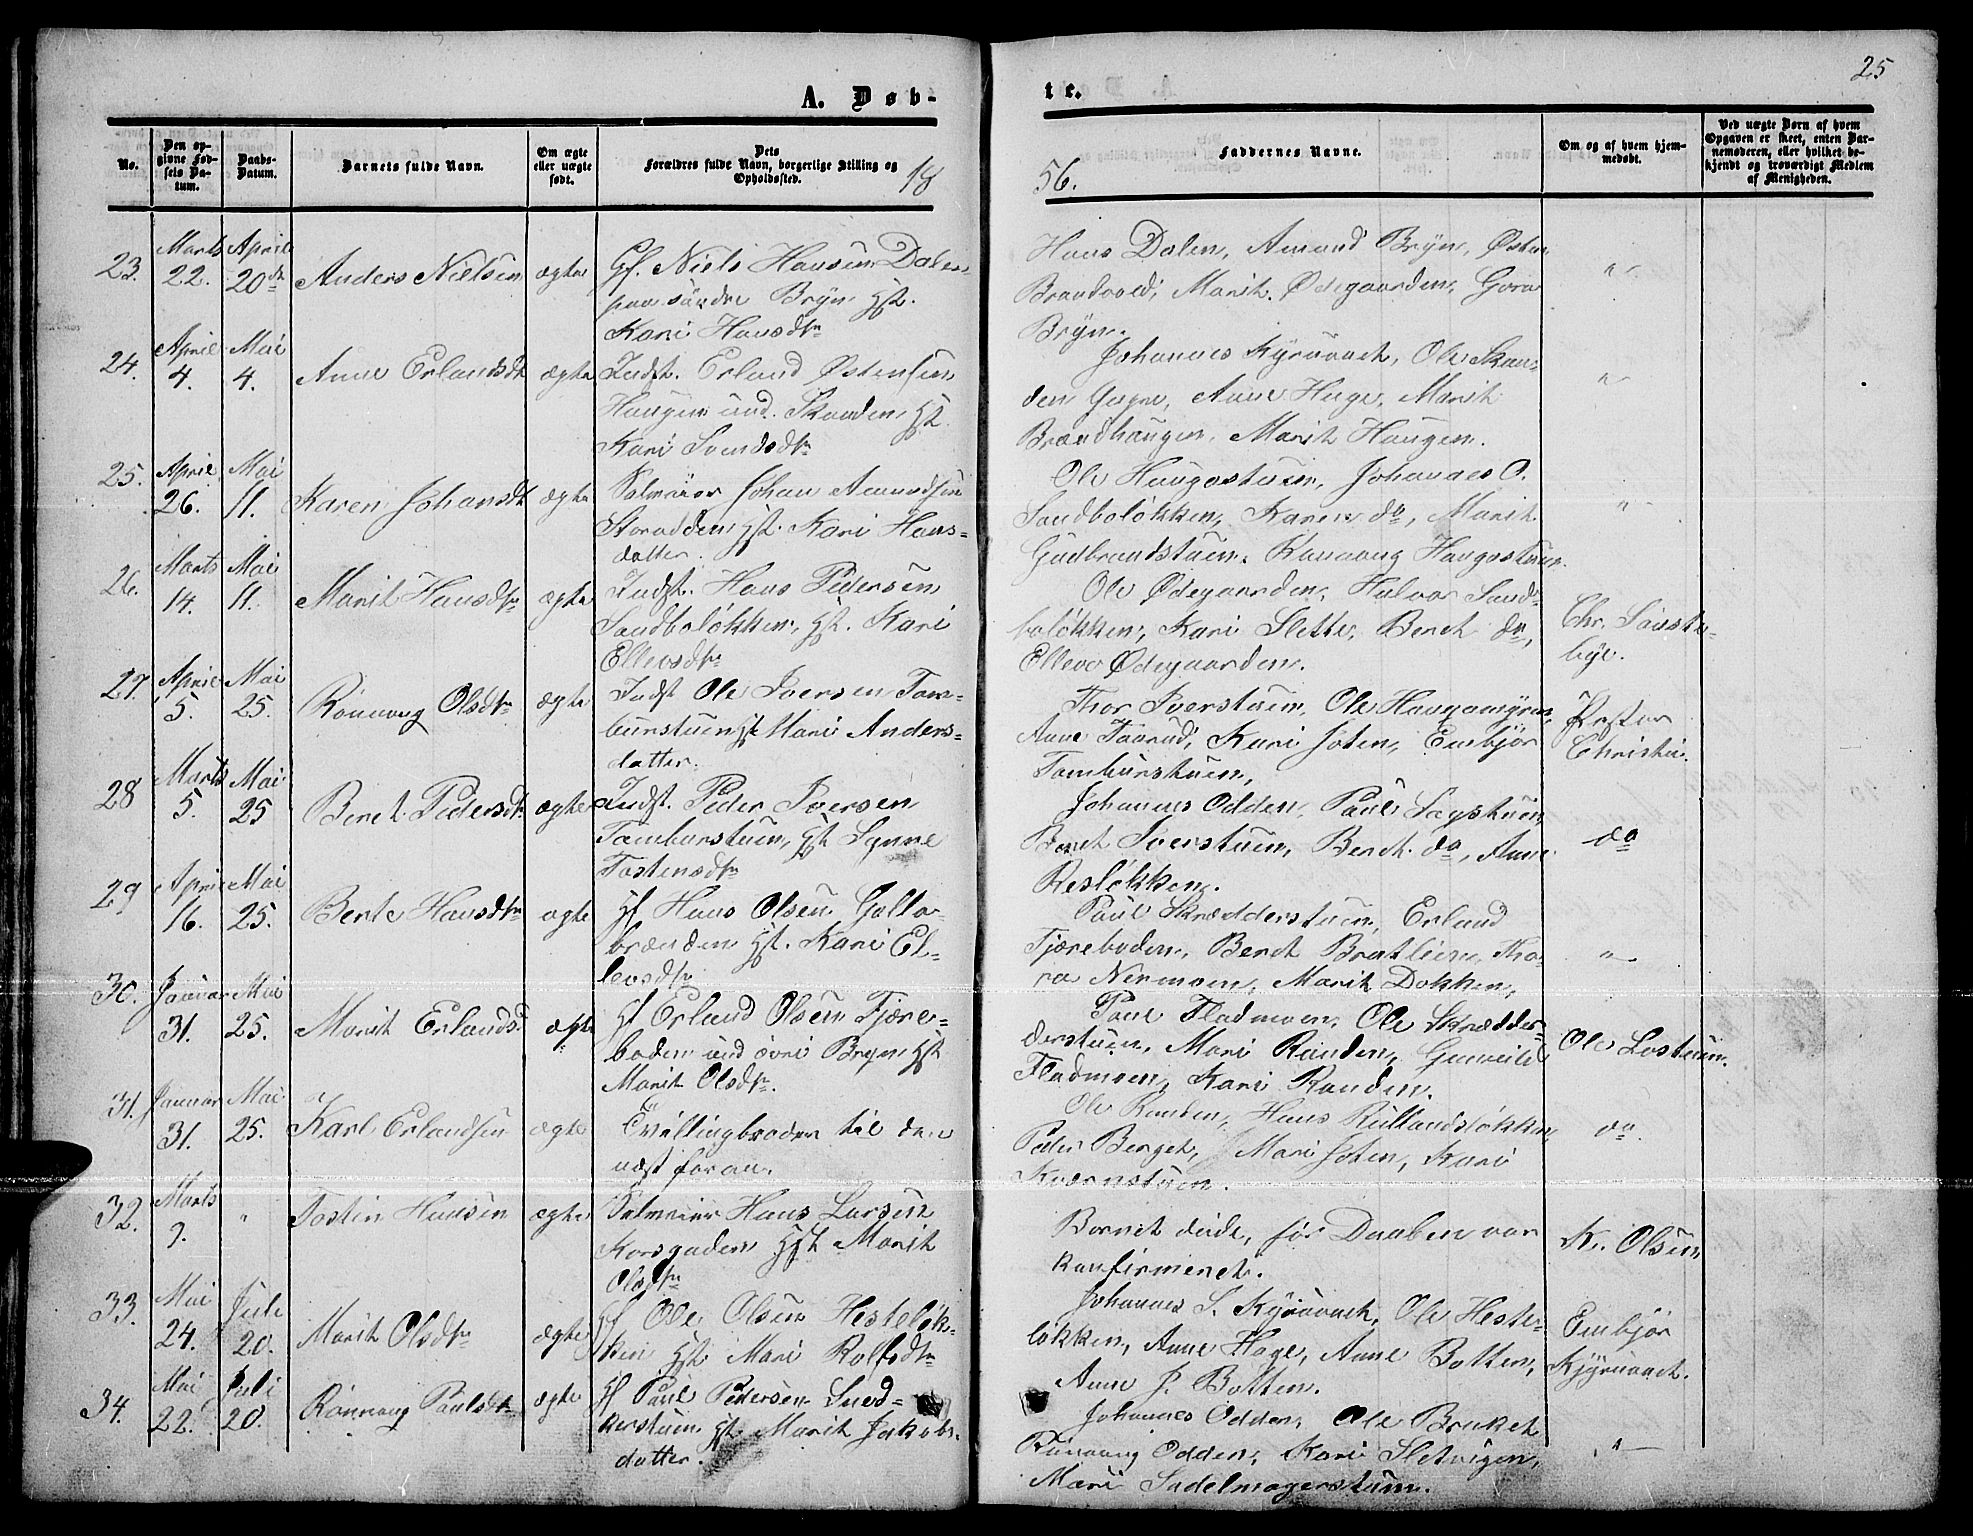 25
A. Døb-
te.
No.
Den op-
givne Fød-
sels Da-
tum.
Daabs-
Datum.
Barnets fulde Navn.
Om ægte
eller uægte
født.
Dets
Forældres fulde Navn, borgerlige Stilling og
Opholdssted.
18
56.
Faddernes Navne.
Om og af hvem hjem-
medøbt.
Ved uægte Børn af hvem
Opgaven er skeet, enten Bar-
nemoderen, eller hvilket be-
kjendt og troværdigt Medlem
af Menigheden.
23. Marts 22. April 20de Anders Nielsen ægte
Gf. Niels Hansen Dalen
paa søndre Bryn Hst.
Kari Hansdtr
Hans Dalen, Amund Bryn, Østen
Brandvold, Marit Ødegaarden, Goro
Bryn.
"
24. April 4. Mai 4. Anne Erlandsdt ægte
Indst. Erland Østensen
Haugen und. Skanden Hst.
Kari Svendsdtr
Johannes Kyruvack, Ole Skan-
den Anne Hage, Marit
Brændhaugen, Marit Haugen.
"
25. April 26. Mai 11. Karen Johansdt ægte
Selveier Johan Amundsen
Storodden Hst. Kari Hans-
datter.
Ole Haugastuen, Johannes O.
Sandboløkken, Karen do, Marit
Gudbrandstuen, Rannaug Haugastuen.
"
26. Marts 14. Mai 11. Marit Hansdtr ægte
Indst. Hans Pedersen
Sandboløkken, Hst. Kari
Ellevsdtr
Ole Ødegaarden, Halvor Sand-
boløkken, Kari Slette, Beret do,
Ellev Ødegaarden.
Chr. Sauste-
bye.
27. April 5. Mai 25. Rønnaug Olsdtr ægte
Indst Ole Iversen Tam-
burstuen Hst Mari Anders-
datter.
Thor Iverstuen, Ole Haugamyren,
Anne Taarud, Kari Joten, Embjør
Tamburstuen,
Pastor
Christie.
28 Marts 5. Mai 25 Beret Pedersdtr ægte
Indst. Peder Iversen
Tamburstuen, Hst Synne
Tostensdtr
Johannes Odden, Paul Sagstuen
Beret Iverstuen, Beret do, Anne
Resløkken.
do
29 April 16. Mai 25. Berte Hansdtr ægte
Hf Hans Olsen Golla-
brænden Hst. Kari El-
levsdtr
Paul Skrædderstuen, Erland
Tjæreboden, Beret Bratlien, Tho-
ra Nermoen, Marit Dokken,
"
30. Januar 31. Mai 25. Marit Erlandsd ægte
Hf Erland Olsen Tjære-
boden und øvre Bryn Hst
Marit Olsdtr.
Paul Fladmoen, Ole Skrædder-
derstuen, Mari Randen, Gunvild
Fladmoen, Kari Randen.
Ole Lostuen.
31. Januar 31. Mai 25. Karl Erlandsen ægte
Tvillingbroder til den
næst foran.
Ole Randen, Hans Rullandsløkken,
Peder Berget, Mari Joten, Kari
Kværnstuen.
do.
32. Marts 9. " Tostin Hansen ægte
Selveier Hans Larsen
Korsgaden Hst Marit
Olsdtr
Barnet døde, før Daaben var
konfirmeret.
K. Olsen
33. Mai 24. Juli 20. Marit Olsdtr ægte
Hf Ole Olsen Hesteløk-
ken Hst Mari Rolfsdtr
Johannes S. Kyruvack, Ole Heste-
løkken, Anne Hage, Anne Botten,
Anne J. Botten.
Embjør
Kjyruvack.
34. Mai 22. Juli 20. Rønnaug Paulsdtr ægte
Hf Paul Pedersen Sned-
kerstuen Hst. Marit Jakobs-
datter.
Johannes Odden, Ole Bruket
Rønnaug Odden, Kari Sletvigen,
Mari Sadelmagerstuen.
"